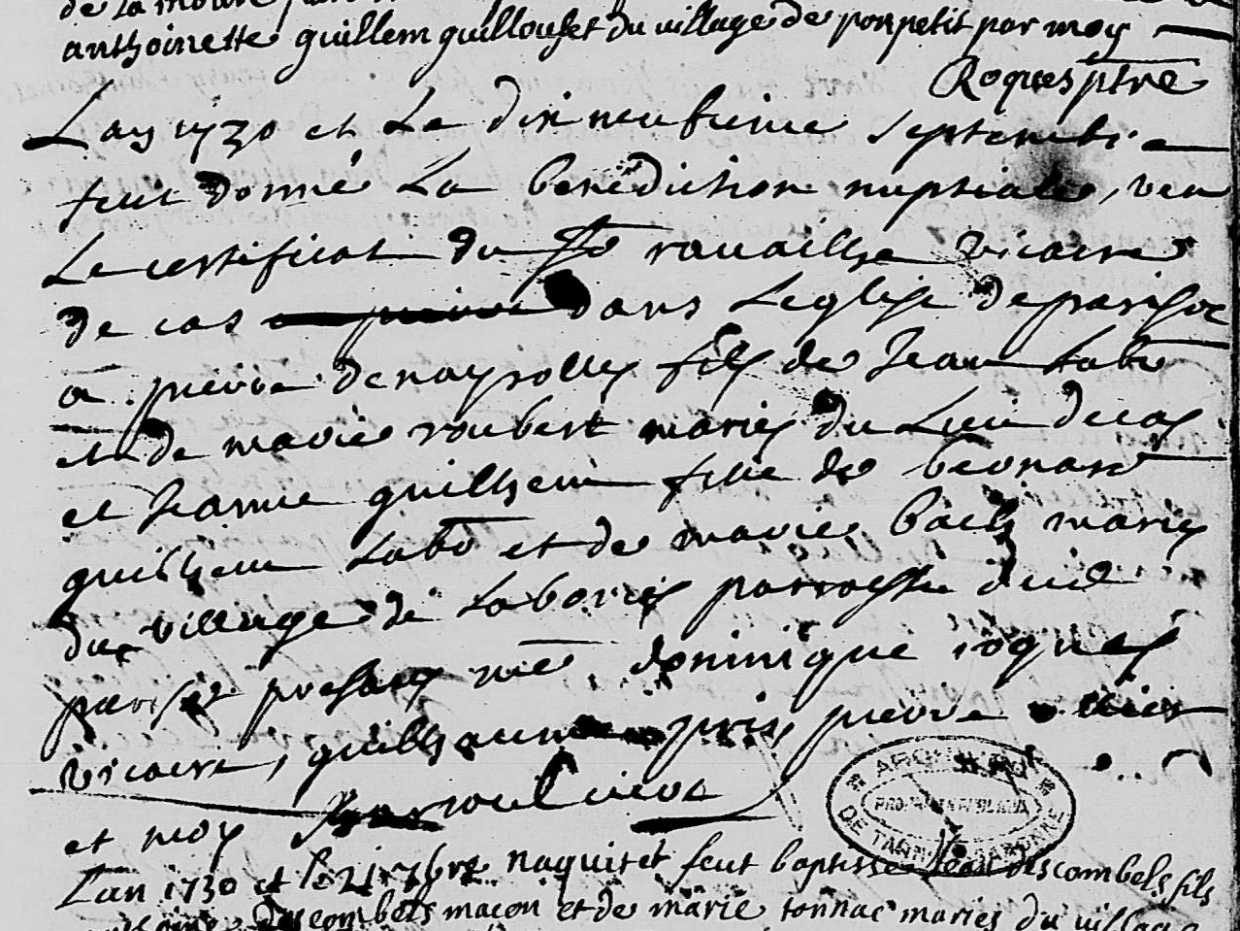 anthoinette guillem guillouset du village de ponpetit par moy
Roques ptre
Lan 1730 et Le dix neufvieme septembre
feut donné La benediction nuptiale, veu
Le certificat du Sr ravailhe vicaire
de cas dans Leglise de parisot
a pierre denayrolles fils de Jean Labr
et de marie roubert mariés du Lieu de cas
et Jeanne guilhem fille de bernard
guilhem Labr et de marie bach mariés
du village de Labories parroisse dud
parisot presans me dominique roques
vicaire, guilhaume pris, pierre
et moy
Lan 1730 et le 21 7bre naquit et feut baptisse Jean descombels fils
descombels macon et de marie tonnac maries du village
ARCHIVES
DE TARN ET GARONNE